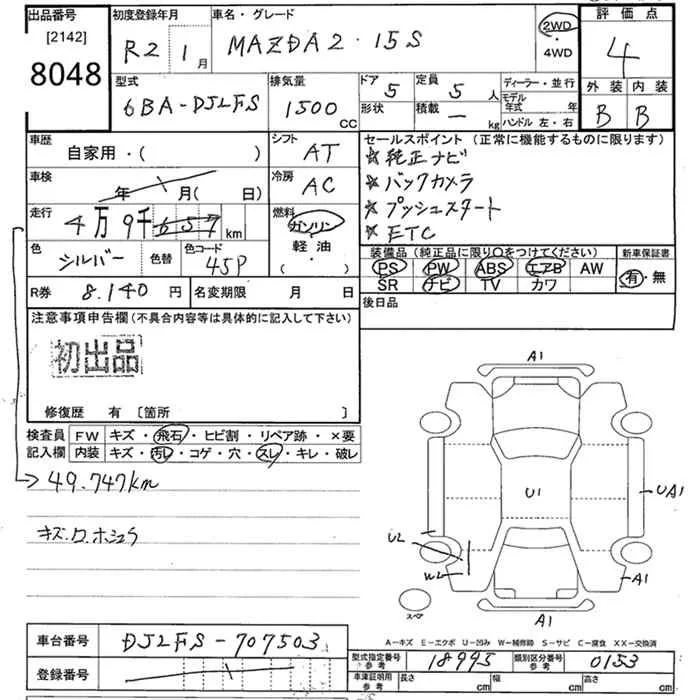 出品番号
[2142]
8048
初度登録年月
R2 1月
車名・グレード
MAZDA2・15S
2WD
・
4WD
評価点
4
外装 内装
B B
型式
6BA-DJLFS
排気量
1500
CC
ドア 5
形状
定員 5 人
積載 ー kg
ディーラー・並行
モデル年式 年
ハンドル 左・右
車歴
自家用・( )
シフト
AT
車検
年 月( 日)
冷房
AC
走行
4万9千657 km
燃料
ガソリン
軽油・
( ・ )
色
シルバー
色替
色コード
45P
R券 8.140 円
名変期限 月 日
セールスポイント (正常に機能するものに限ります)
☆純正ナビ
☆バックカメラ
☆プッシュスタート
☆ETC
装備品 (純正品に限り○をつけてください)
新車保証書
PS PW ABS エアB AW
SR ナビ TV カワ
有・無
後日品
注意事項申告欄 (不具合内容等は具体的に記入して下さい)
初出品
修復歴 有 [箇所 ]
検査員
記入欄
FW キズ・飛石・ヒビ割・リペア跡・×要
内装 キズ・汚レ・コゲ・穴・スレ・キレ・破レ
→49.747km
キズ.ワ.ホシュウ
A1
U1
UA1
UL
WL
A1
スペア
A1
A-キズ E-エクボ U-凹み W-補修跡 S-サビ C-腐食 XX-交換済
車台番号 DJLFS-707503
登録番号
型式指定番号
参考
18995
類別区分番号
参考
0153
車庫証明用
参考
長さ cm 幅 cm 高さ cm